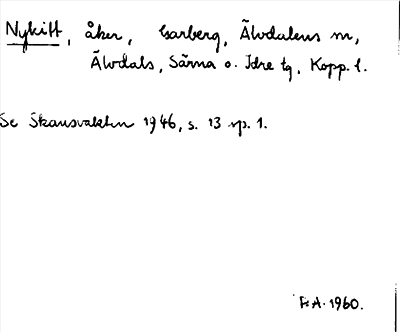 Nykitt, åker, Garberg, Älvdalens sn,
Älvdals, Särna o. Idre tg, Kopp. l.
Se Skansvakten 1946, s. 13 sp. 1.
R.A. 1960.